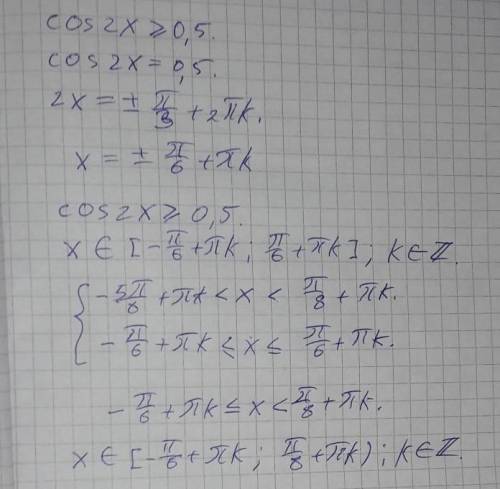 cos2x ≥ 0,5.
cos2x = 0,5.
2x = ± π/3 + 2πk.
x = ± π/6 + πk
cos2x ≥ 0,5.
x ∈ [-π/6 + πk ; π/6 + πk] ; k ∈ ℤ.
{ -5π/8 + πk < x < π/8 + πk.
-π/6 + πk ≤ x ≤ π/6 + πk.
-π/6 + πk ≤ x < π/8 + πk.
x ∈ [-π/6 + πk ; π/8 + πk) ; k ∈ ℤ.